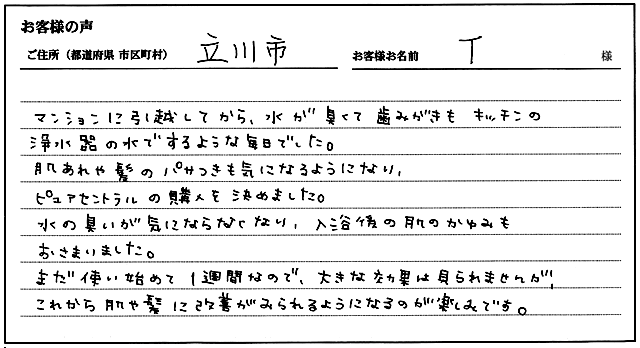 お客様の声
ご住所（都道府県 市区町村） 立川市 お客様お名前 T 様
マンションに引越してから、水が臭くて歯みがきもキッチンの
浄水器の水でするような毎日でした。
肌あれや髪のパサつきも気になるようになり、
ピュアセントラルの購入を決めました。
水の臭いが気にならなくなり、入浴後の肌のかゆみも
おさまりました。
まだ使い始めて1週間なので、大きな効果は見られませんが、
これから肌や髪に改善がみられるようになるのが楽しみです。